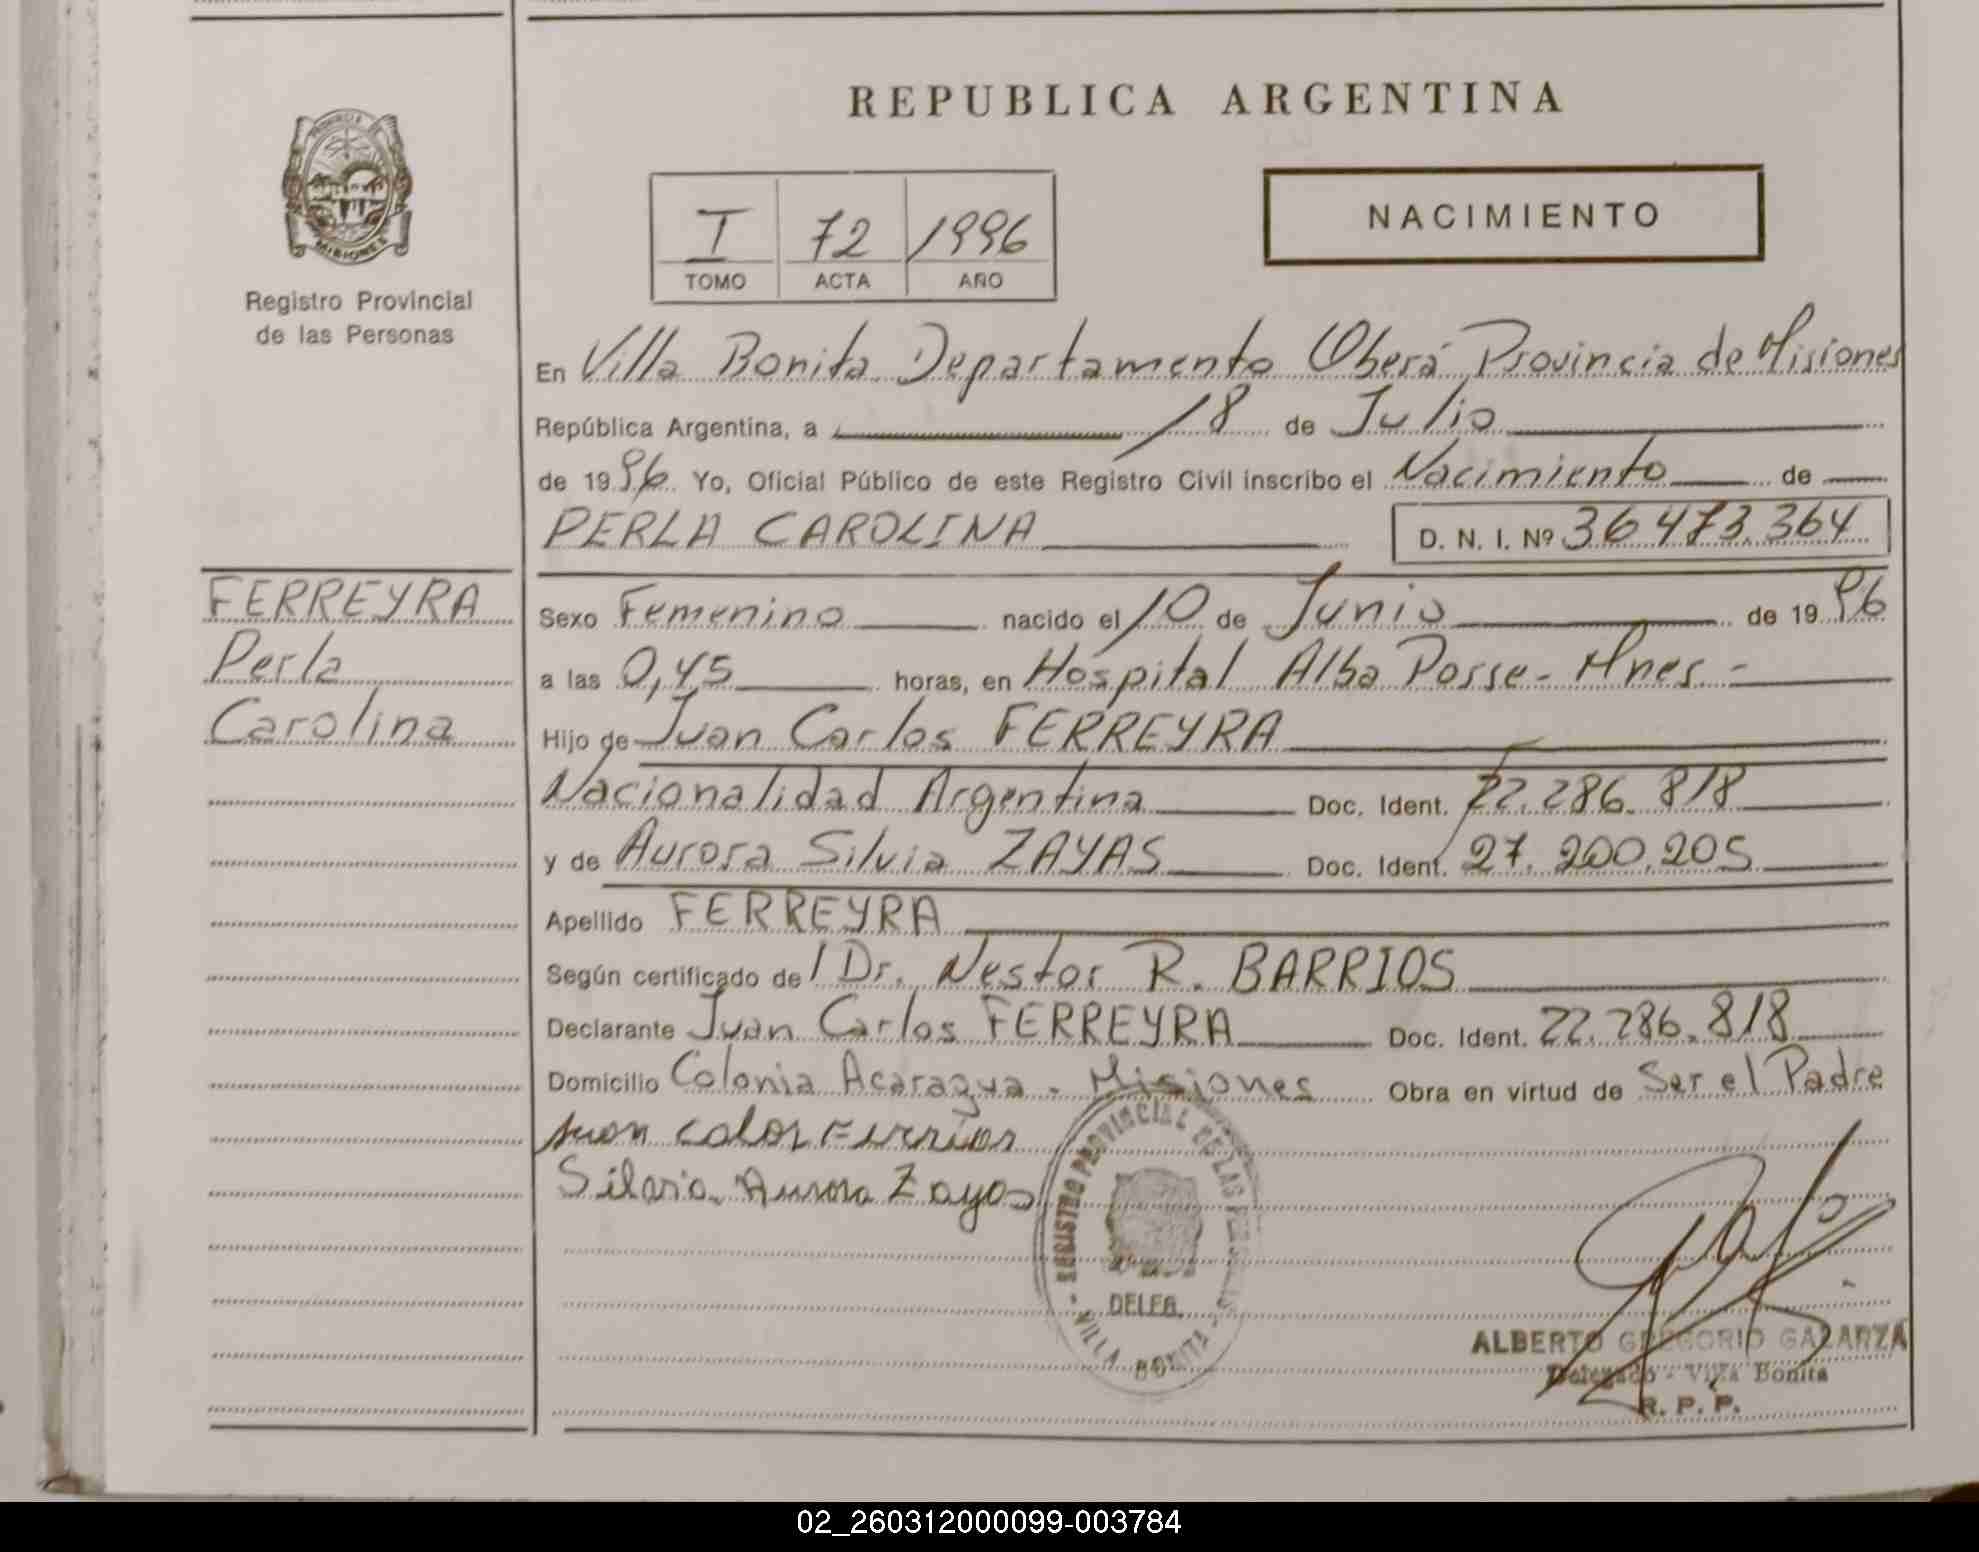 REPUBLICA ARGENTINA
PROVINCIA D MISIONES
Registro Provincial
de las Personas
I 72 1996
TOMO ACTA AÑO
NACIMIENTO
En Villa Bonita Departamento Oberá Provincia de Misiones
República Argentina, a 18 de Julio
de 1996 Yo, Oficial Público de este Registro Civil inscribo el Nacimiento de
PERLA CAROLINA D. N. I. Nº 36.473.364
FERREYRA
Perla
Carolina
Sexo Femenino nacido el 10 de Junio de 1996
a las 0,45 horas, en Hospital Alba Posse - Mnes -
Hijo de Juan Carlos FERREYRA
Nacionalidad Argentina Doc. Ident. 22.286.818
y de Aurora Silvia ZAYAS Doc. Ident. 27.200.205
Apellido FERREYRA
Según certificado de l Dr. Nestor R. BARRIOS
Declarante Juan Carlos FERREYRA Doc. Ident. 22.286.818
Domicilio Colonia Acaragua - Misiones Obra en virtud de Ser el Padre
Silvia Aurora Zayas
REGISTRO PROVINCIAL DE LAS PERSONAS
DELEG.
- VILLA BONITA -
ALBERTO GREGORIO GALARZA
Delegado - Villa Bonita
R. P. P.
02_260312000099-003784